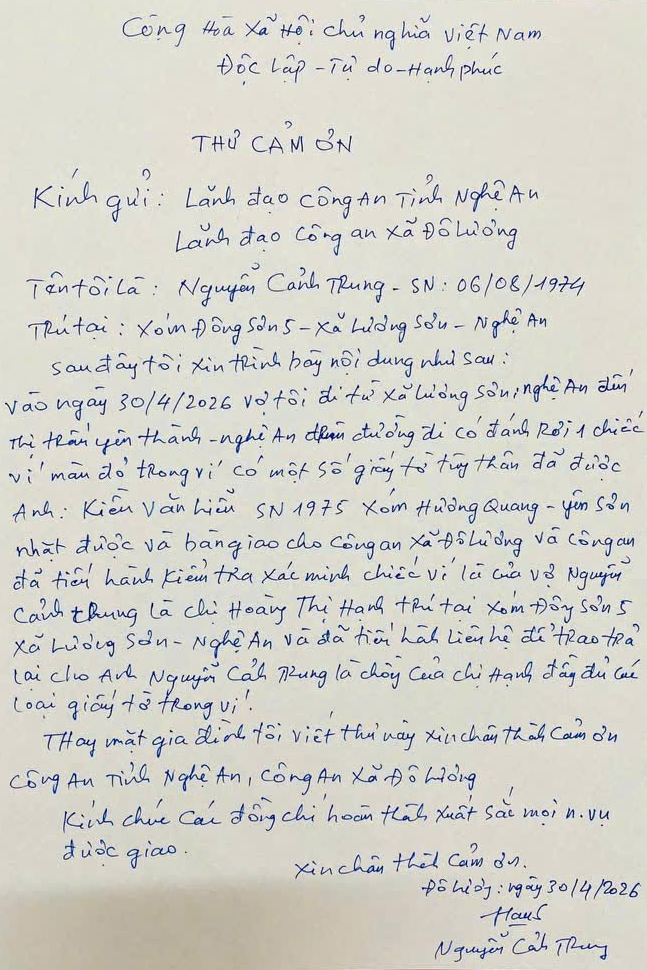 Cộng Hoà Xã Hội chủ nghĩa Việt Nam
Độc lập - Tự do - Hạnh phúc
THƯ CẢM ƠN
Kính gửi: Lãnh đạo Công An Tỉnh Nghệ An
Lãnh đạo Công an Xã Đô Lương
Tên tôi là: Nguyễn Cảnh Trung - SN: 06/08/1974
Trú tại: Xóm Đông Sơn 5 - Xã Lương Sơn - Nghệ An
Sau đây tôi xin trình bày nội dung như sau:
Vào ngày 30/4/2026 vợ tôi đi từ xã Lương Sơn, nghệ An đến
Thị trấn yên thành - nghệ An trên đường đi có đánh rơi 1 chiếc
ví màu đỏ trong ví có một số giấy tờ tùy thân đã được
Anh: Kiều Văn Hiếu SN 1975 Xóm Hương Quang - yên Sơn
nhặt được và bàn giao cho Công an Xã Đô Lương và công an
đã tiến hành kiểm tra xác minh chiếc ví là của vợ Nguyễn
Cảnh Trung là chị Hoàng Thị Hạnh trú tại xóm Đông Sơn 5
Xã Lương Sơn - Nghệ An và đã tiến hành liên hệ để trao trả
lại cho Anh Nguyễn Cảnh Trung là chồng của chị Hạnh đầy đủ các
loại giấy tờ trong ví.
Thay mặt gia đình tôi viết thư này xin chân thành cảm ơn
Công An Tỉnh Nghệ An, Công An Xã Đô Lương
Kính chúc các đồng chí hoàn thành xuất sắc mọi n.vụ
được giao.
Xin chân thành Cảm ơn.
Đô Lương: ngày 30/4/2026
Nguyễn Cảnh Trung